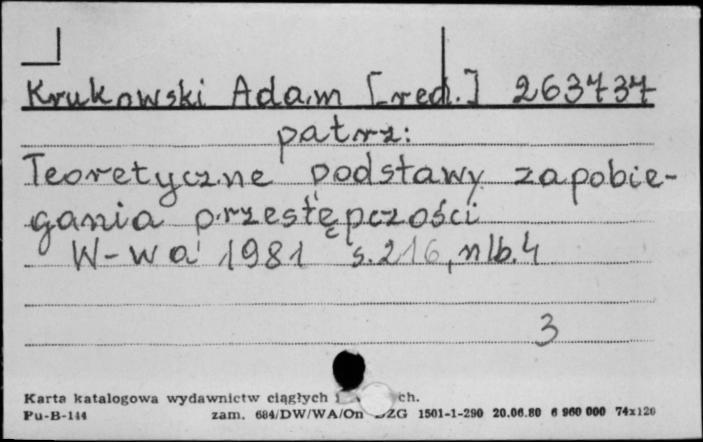 Krukowski Adam [red.] 263737
patrz:
Teoretyczne podstawy zapobie-
gania przestępczości
W-wa 1981 s. 216, nlb. 4
3
Karta katalogowa wydawnictw ciągłych ch.
Pu-B-144 zam. 684/DW/WA/On ZG 1501-1-290 20.06.80 6 960 000 74x120